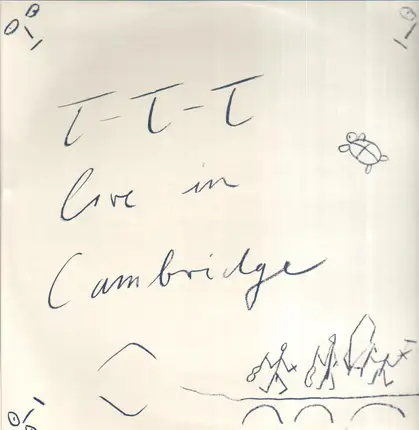 T-T-T
live in
Cambridge